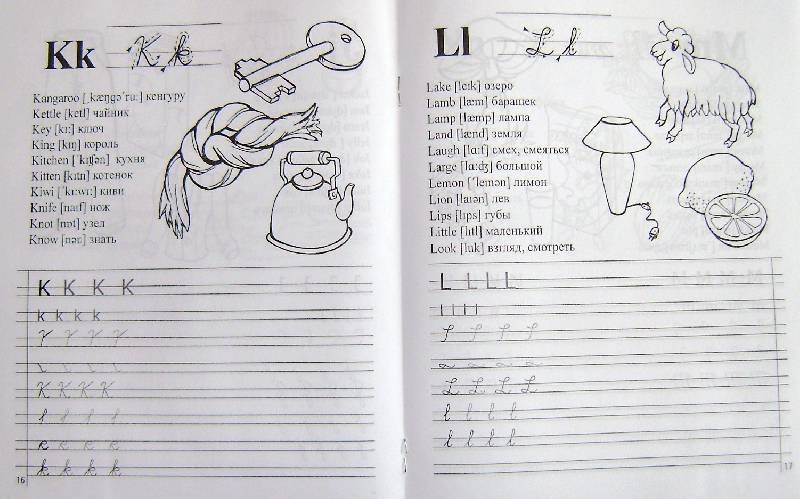 Kk K k
Kangaroo [ˌkæŋgəˈruː] кенгуру
Kettle [ketl] чайник
Key [kiː] ключ
King [kıŋ] король
Kitchen [ˈkıʧən] кухня
Kitten [kıtn] котенок
Kiwi [ˈkiːwiː] киви
Knife [naıf] нож
Knot [nɒt] узел
Know [nəʊ] знать
K K K K
k k k k
K K K K
k k k k
16
Ll L l
Lake [leık] озеро
Lamb [læm] барашек
Lamp [læmp] лампа
Land [lænd] земля
Laugh [lɑːf] смех, смеяться
Large [lɑːʤ] большой
Lemon [ˈlemən] лимон
Lion [laıən] лев
Lips [lıps] губы
Little [lıtl] маленький
Look [lʊk] взгляд, смотреть
L L L L
l l l l
L L L L
l l l l
l l l l
17